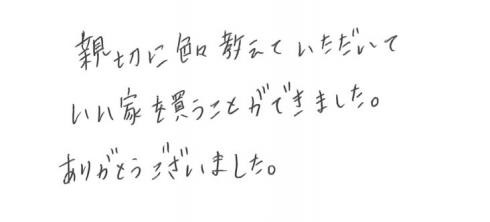 親切に色々教えていただいて
いい家を買うことができました。
ありがとうございました。